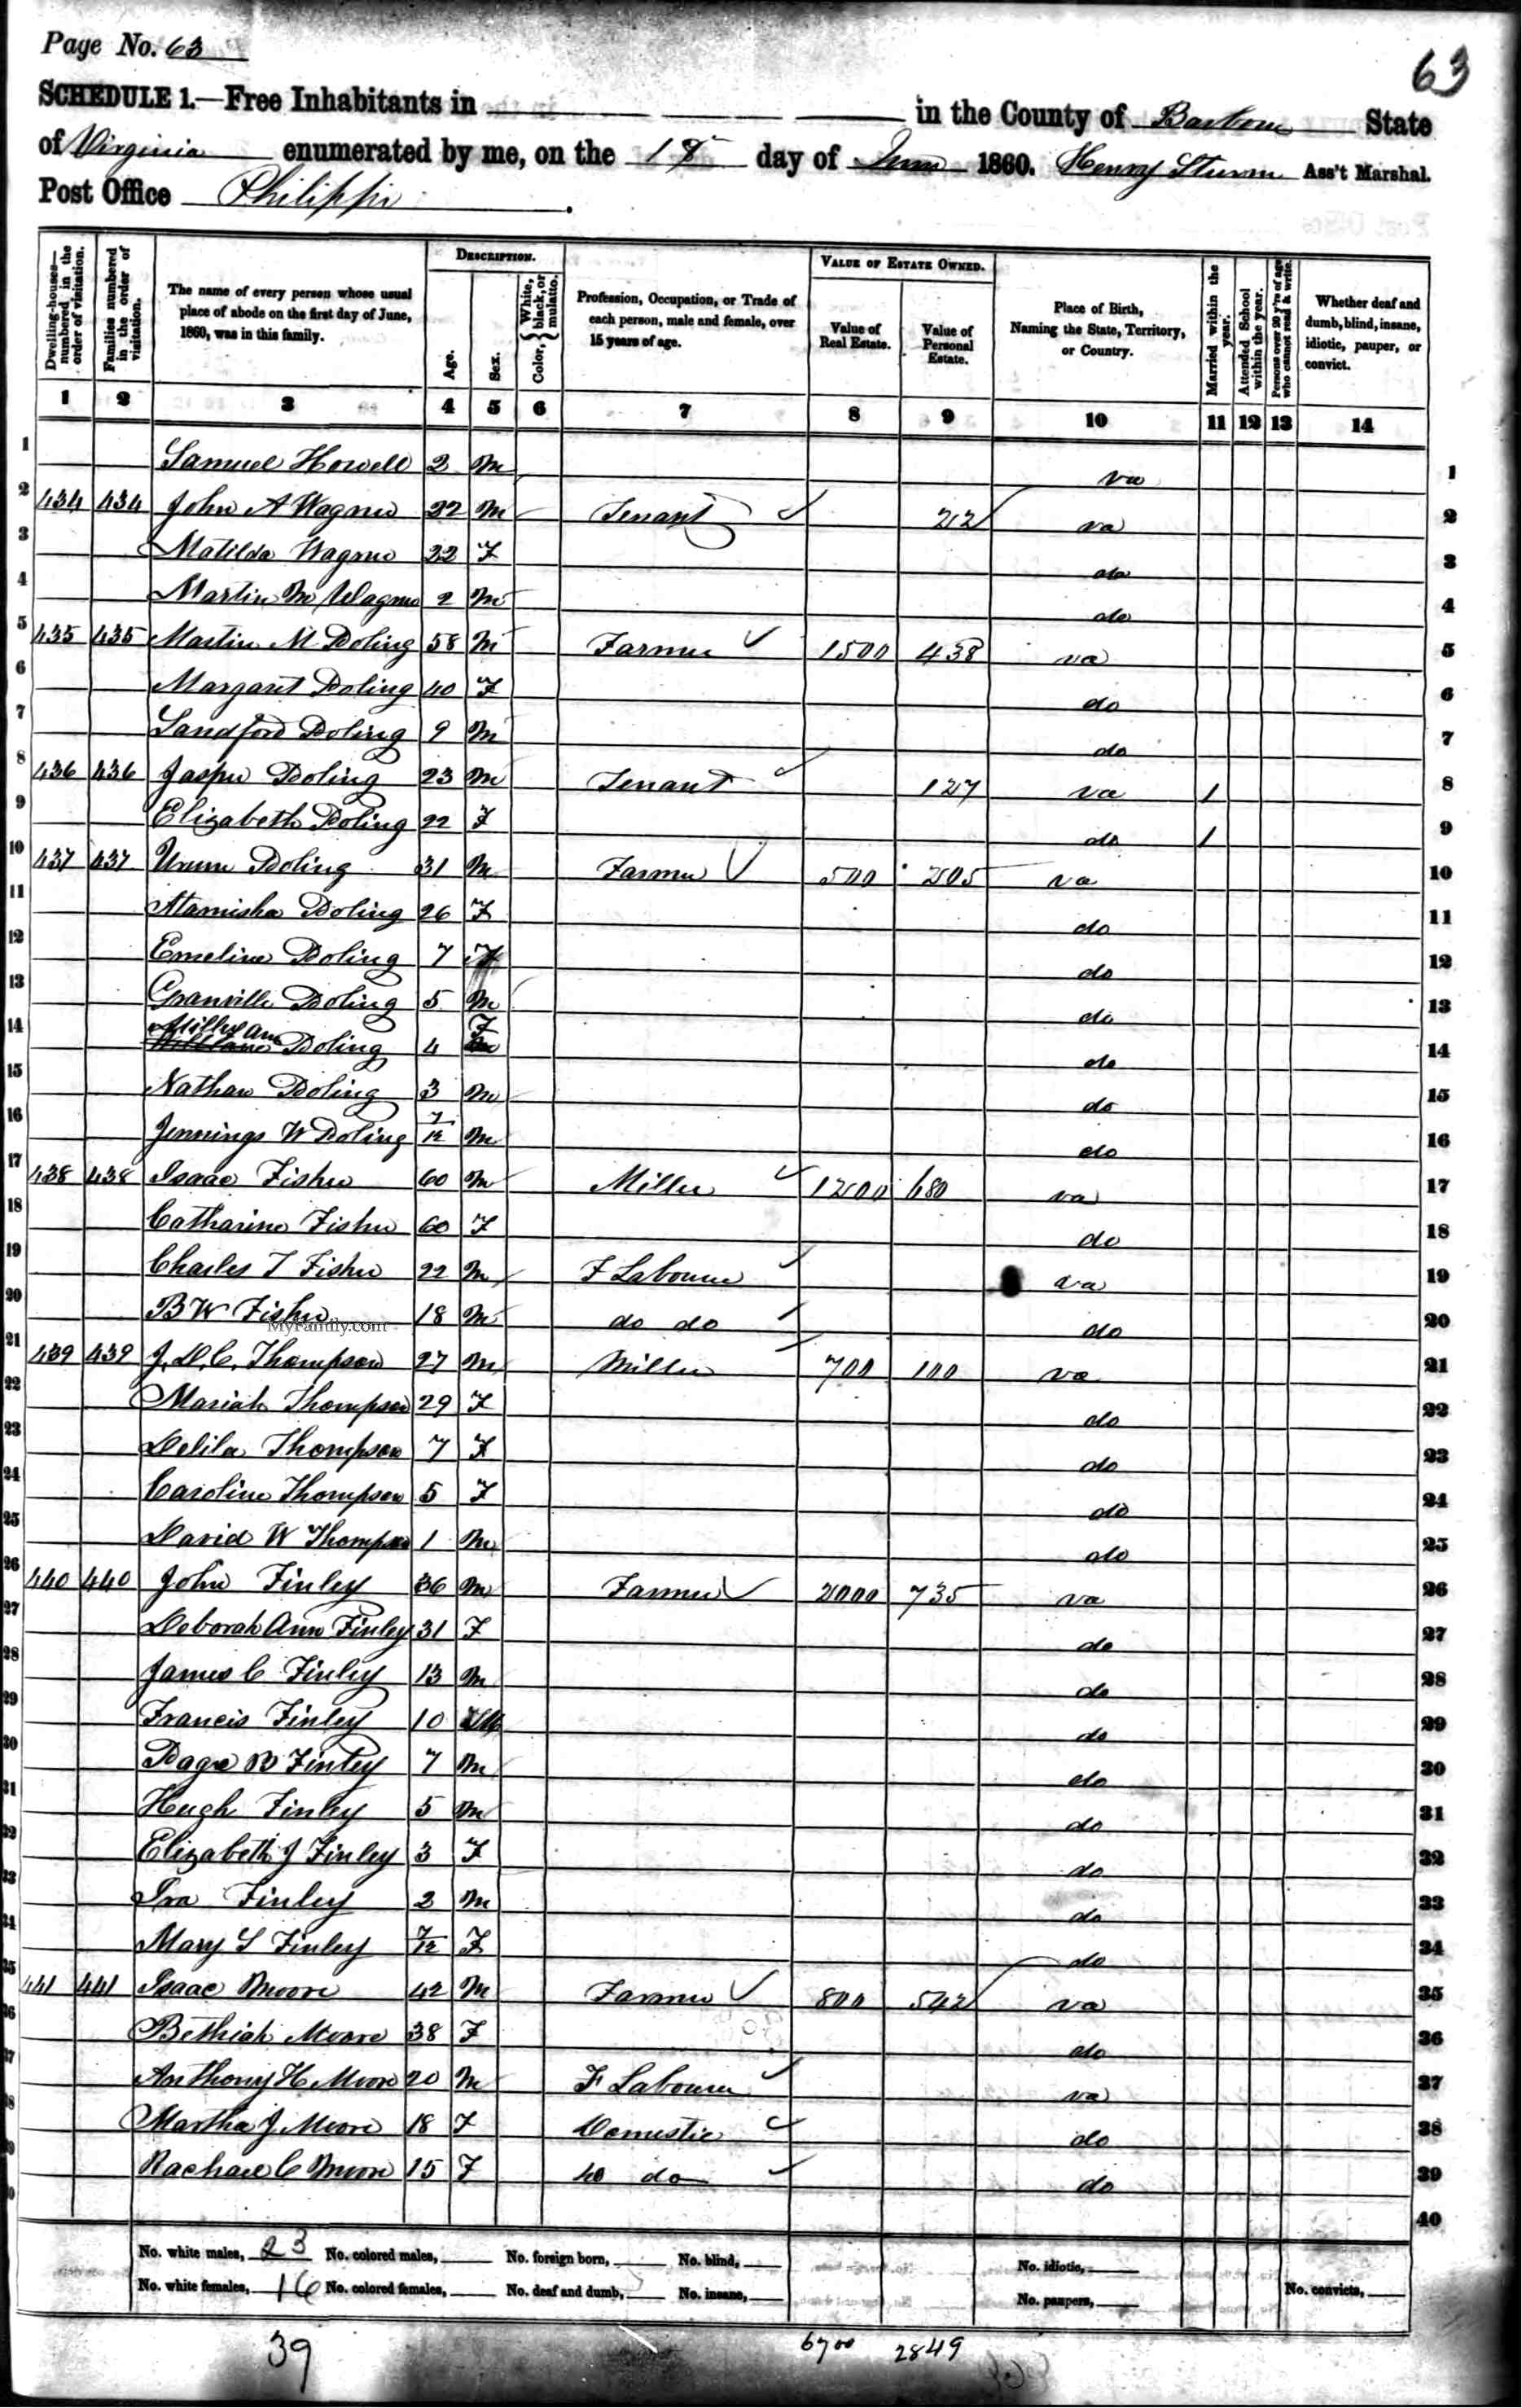 Page No. 63
63
SCHEDULE 1.—Free Inhabitants in in the County of Barbour State
of Virginia enumerated by me, on the 18 day of June 1860. Henry Sturm Ass't Marshal.
Post Office Philippi.
Dwelling-houses—numbered in the order of visitation.
Families numbered in the order of visitation.
The name of every person whose usual place of abode on the first day of June, 1860, was in this family.
DESCRIPTION.
Age.
Sex.
Color, { White, black, or mulatto.
Profession, Occupation, or Trade of each person, male and female, over 15 years of age.
VALUE OF ESTATE OWNED.
Value of Real Estate.
Value of Personal Estate.
Place of Birth, Naming the State, Territory, or Country.
Married within the year.
Attended School within the year.
Persons over 20 y'rs of age who cannot read & write.
Whether deaf and dumb, blind, insane, idiotic, pauper, or convict.
1 2 3 4 5 6 7 8 9 10 11 12 13 14
1 Samuel Howell 2 M va 1
2 434 434 John A Wagner 22 M Tenant 212 va 2
3 Matilda Wagner 22 F do 3
4 Martin M Wagner 2 M do 4
5 435 435 Martin M Boling 58 M Farmer 1500 438 va 5
6 Margaret Boling 40 F do 6
7 Sandford Boling 9 M do 7
8 436 436 Jasper Boling 23 M Tenant 127 va 1 8
9 Elizabeth Boling 22 F do 1 9
10 437 437 Boling 31 M Farmer 500 205 va 10
11 Boling 26 F do 11
12 Emeline Boling 7 F do 12
13 Granville Boling 5 M do 13
14 Milly Ann Boling 4 F do 14
15 Nathan Boling 3 M do 15
16 Jennings W Boling 7/12 M do 16
17 438 438 Isaac Fisher 60 M Miller 1200 680 va 17
18 Catharine Fisher 60 F do 18
19 Charles T Fisher 22 M F Labourer va 19
20 B W Fisher 18 M do do do 20
MyFamily.com
21 439 439 J. D. C. Thompson 27 M Miller 700 100 va 21
22 Mariah Thompson 29 F do 22
23 Delila Thompson 7 F do 23
24 Caroline Thompson 5 F do 24
25 David W Thompson 1 M do 25
26 440 440 John Finley 36 M Farmer 2000 735 va 26
27 Deborah Ann Finley 31 F do 27
28 James C Finley 13 M do 28
29 Francis Finley 10 M do 29
30 Page B Finley 7 M do 30
31 Hugh Finley 5 M do 31
32 Elizabeth J Finley 3 F do 32
33 Ira Finley 2 M do 33
34 Mary S Finley 7/12 F do 34
35 441 441 Isaac Moore 42 M Farmer 800 542 va 35
36 Bethiah Moore 38 F do 36
37 Anthony H Moore 20 M F Labourer va 37
38 Martha J Moore 18 F Domestic do 38
39 Rachael C Moore 15 F do do do 39
40
No. white males, 23 No. colored males, No. foreign born, No. blind, No. idiotic,
No. white females, 16 No. colored females, No. deaf and dumb, No. insane, No. paupers, No. convicts,
39 6700 2849